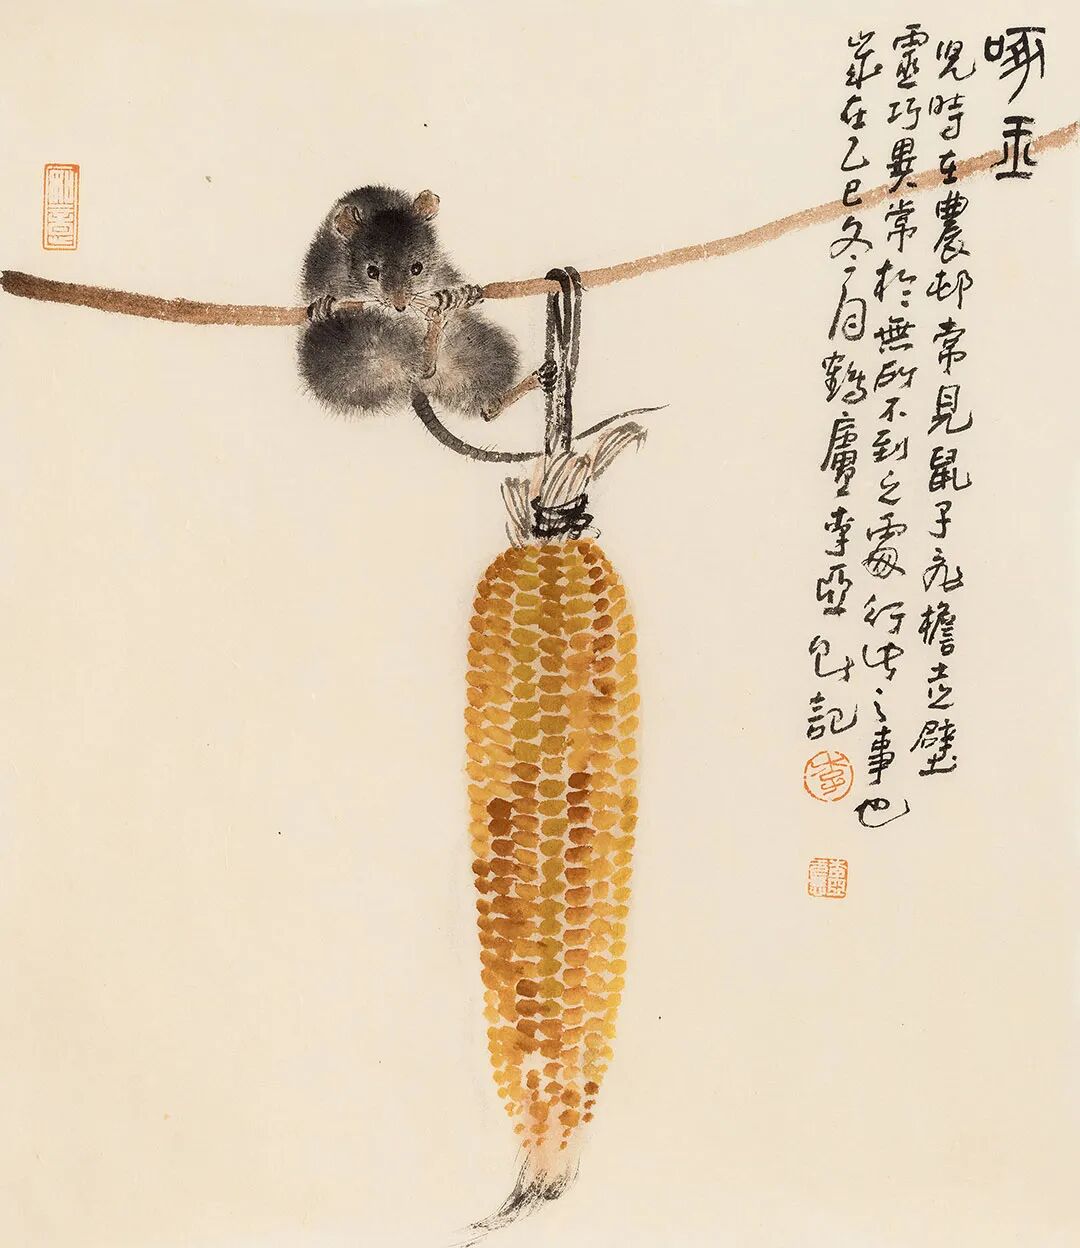 啄玉
兒時在農邨常見鼠子飛檐走壁
靈巧異常於無所不到之處行之事也
歲在乙巳冬月鶴廬李亞記
李